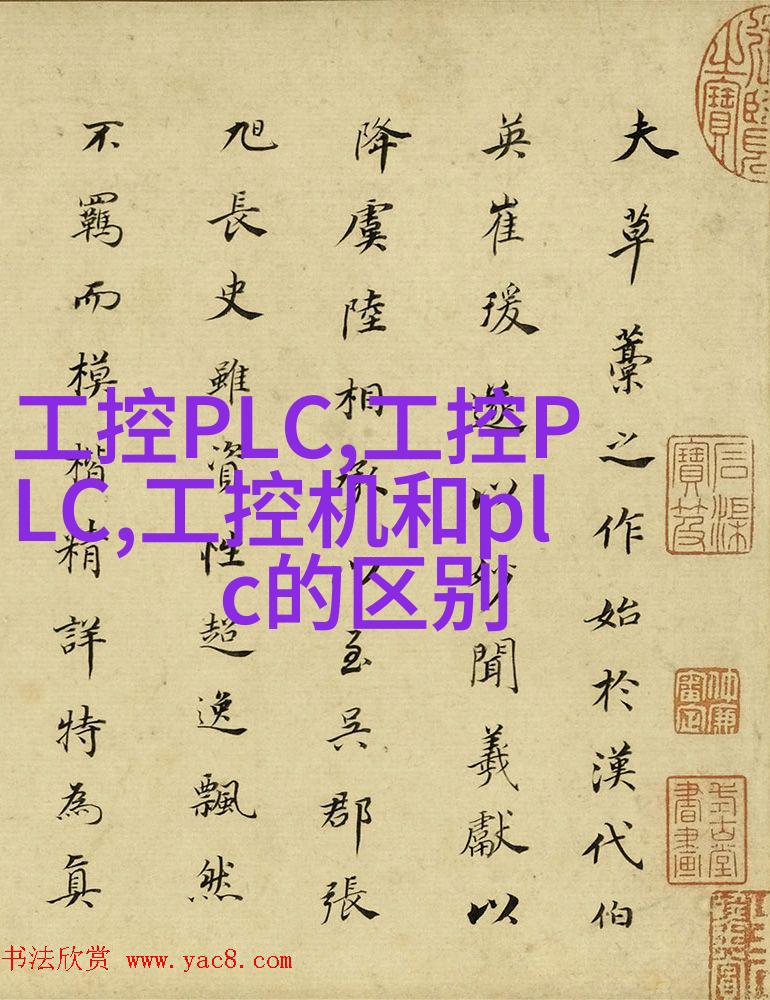 夫草藁之作始於漢代伯
英崔瑗遂以妙聞羲獻以
降虞陸相承以至吳郡張
旭長史雖資性超逸飄然
不羈而模楷精詳特為真
工控PLC,工控P
LC,工控机和pl
c的区别
书法欣赏 www.yac8.com